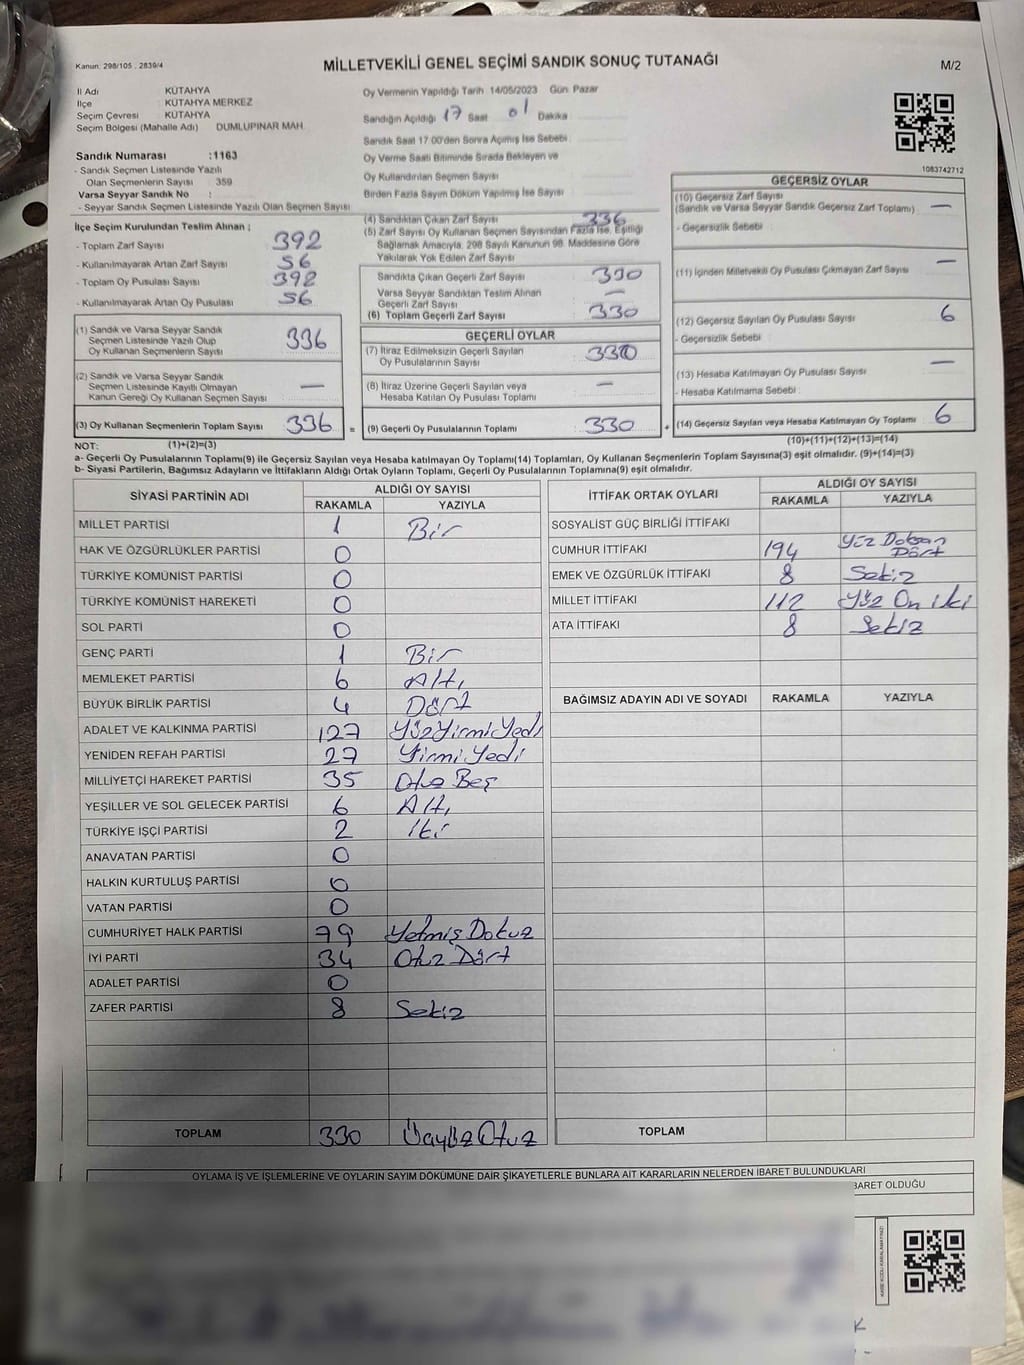 Kanun: 298/105 . 2839/4
MİLLETVEKİLİ GENEL SEÇİMİ SANDIK SONUÇ TUTANAĞI
M/2
İl Adı KÜTAHYA
İlçe KÜTAHYA MERKEZ
Seçim Çevresi KÜTAHYA
Seçim Bölgesi (Mahalle Adı) DUMLUPINAR MAH.
Sandık Numarası :1163
- Sandık Seçmen Listesinde Yazılı
Olan Seçmenlerin Sayısı 359
Varsa Seyyar Sandık No :
- Seyyar Sandık Seçmen Listesinde Yazılı Olan Seçmen Sayısı
Oy Vermenin Yapıldığı Tarih 14/05/2023 Gün: Pazar
Sandığın Açıldığı 17 Saat 01 Dakika
Sandık Saat 17:00'den Sonra Açılmış İse Sebebi
Oy Verme Saati Bitiminde Sırada Bekleyen ve
Oy Kullandırılan Seçmen Sayısı
Birden Fazla Sayım Döküm Yapılmış İse Sayısı
1083742712
İlçe Seçim Kurulundan Teslim Alınan ;
- Toplam Zarf Sayısı 392
- Kullanılmayarak Artan Zarf Sayısı 56
- Toplam Oy Pusulası Sayısı 392
- Kullanılmayarak Artan Oy Pusulası 56
(1) Sandık ve Varsa Seyyar Sandık
Seçmen Listesinde Yazılı Olup
Oy Kullanan Seçmenlerin Sayısı 336
(2) Sandık ve Varsa Seyyar Sandık
Seçmen Listesinde Kayıtlı Olmayan
Kanun Gereği Oy Kullanan Seçmen Sayısı : —
(3) Oy Kullanan Seçmenlerin Toplam Sayısı 336 =
(4) Sandıktan Çıkan Zarf Sayısı 336
(5) Zarf Sayısı Oy Kullanan Seçmen Sayısından Fazla İse, Eşitliği
Sağlamak Amacıyla, 298 Sayılı Kanunun 98. Maddesine Göre
Yakılarak Yok Edilen Zarf Sayısı
Sandıkta Çıkan Geçerli Zarf Sayısı 330
Varsa Seyyar Sandıktan Teslim Alınan
Geçerli Zarf Sayısı —
(6) Toplam Geçerli Zarf Sayısı : 330
GEÇERLİ OYLAR
(7) İtiraz Edilmeksizin Geçerli Sayılan
Oy Pusulalarının Sayısı 330
(8) İtiraz Üzerine Geçerli Sayılan veya
Hesaba Katılan Oy Pusulası Toplamı —
(9) Geçerli Oy Pusulalarının Toplamı : 330 +
GEÇERSİZ OYLAR
(10) Geçersiz Zarf Sayısı
(Sandık ve Varsa Seyyar Sandık Geçersiz Zarf Toplamı) : —
- Geçersizlik Sebebi :
(11) İçinden Milletvekili Oy Pusulası Çıkmayan Zarf Sayısı —
(12) Geçersiz Sayılan Oy Pusulası Sayısı : 6
- Geçersizlik Sebebi :
(13) Hesaba Katılmayan Oy Pusulası Sayısı : —
- Hesaba Katılmama Sebebi :
(14) Geçersiz Sayılan veya Hesaba Katılmayan Oy Toplamı : 6
NOT: (1)+(2)=(3) (10)+(11)+(12)+(13)=(14)
a- Geçerli Oy Pusulalarının Toplamı(9) ile Geçersiz Sayılan veya Hesaba katılmayan Oy Toplamı(14) Toplamları, Oy Kullanan Seçmenlerin Toplam Sayısına(3) eşit olmalıdır. (9)+(14)=(3)
b- Siyasi Partilerin, Bağımsız Adayların ve İttifakların Aldığı Ortak Oyların Toplamı, Geçerli Oy Pusulalarının Toplamına(9) eşit olmalıdır.
SİYASİ PARTİNİN ADI ALDIĞI OY SAYISI
RAKAMLA YAZIYLA
MİLLET PARTİSİ 1 Bir
HAK VE ÖZGÜRLÜKLER PARTİSİ 0
TÜRKİYE KOMÜNİST PARTİSİ 0
TÜRKİYE KOMÜNİST HAREKETİ 0
SOL PARTİ 0
GENÇ PARTİ 1 Bir
MEMLEKET PARTİSİ 6 Altı
BÜYÜK BİRLİK PARTİSİ 4 Dört
ADALET VE KALKINMA PARTİSİ 127 YüzYirmiYedi
YENİDEN REFAH PARTİSİ 27 YirmiYedi
MİLLİYETÇİ HAREKET PARTİSİ 35 Otuz Beş
YEŞİLLER VE SOL GELECEK PARTİSİ 6 Altı
TÜRKİYE İŞÇİ PARTİSİ 2 İki
ANAVATAN PARTİSİ 0
HALKIN KURTULUŞ PARTİSİ 0
VATAN PARTİSİ 0
CUMHURİYET HALK PARTİSİ 79 Yetmiş Dokuz
İYİ PARTİ 34 Otuz Dört
ADALET PARTİSİ 0
ZAFER PARTİSİ 8 Sekiz
TOPLAM 330 Üçyüz Otuz
İTTİFAK ORTAK OYLARI ALDIĞI OY SAYISI
RAKAMLA YAZIYLA
SOSYALİST GÜÇ BİRLİĞİ İTTİFAKI
CUMHUR İTTİFAKI 194 Yüz Doksan
Dört
EMEK VE ÖZGÜRLÜK İTTİFAKI 8 Sekiz
MİLLET İTTİFAKI 112 Yüz On iki
ATA İTTİFAKI 8 Sekiz
BAĞIMSIZ ADAYIN ADI VE SOYADI RAKAMLA YAZIYLA
TOPLAM
OYLAMA İŞ VE İŞLEMLERİNE VE OYLARIN SAYIM DÖKÜMÜNE DAİR ŞİKAYETLERLE BUNLARA AİT KARARLARIN NELERDEN İBARET BULUNDUKLARI
BARET OLDUĞU